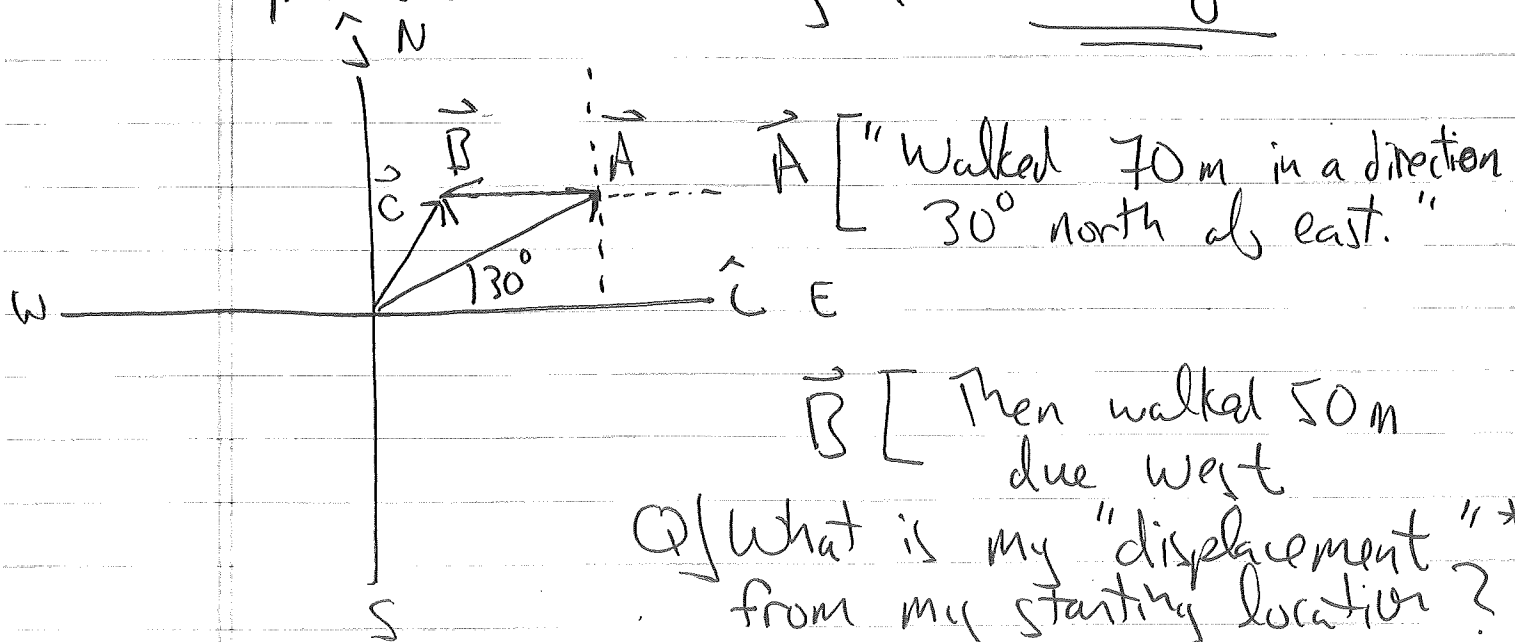 ĵ N
B⃗
A⃗
C⃗
30°
W
î E
S
A⃗ [ "Walked 70 m in a direction
30° north of east."
B⃗ [ Then walked 50 m
due west
Q/ What is my "displacement"*
from my starting location?